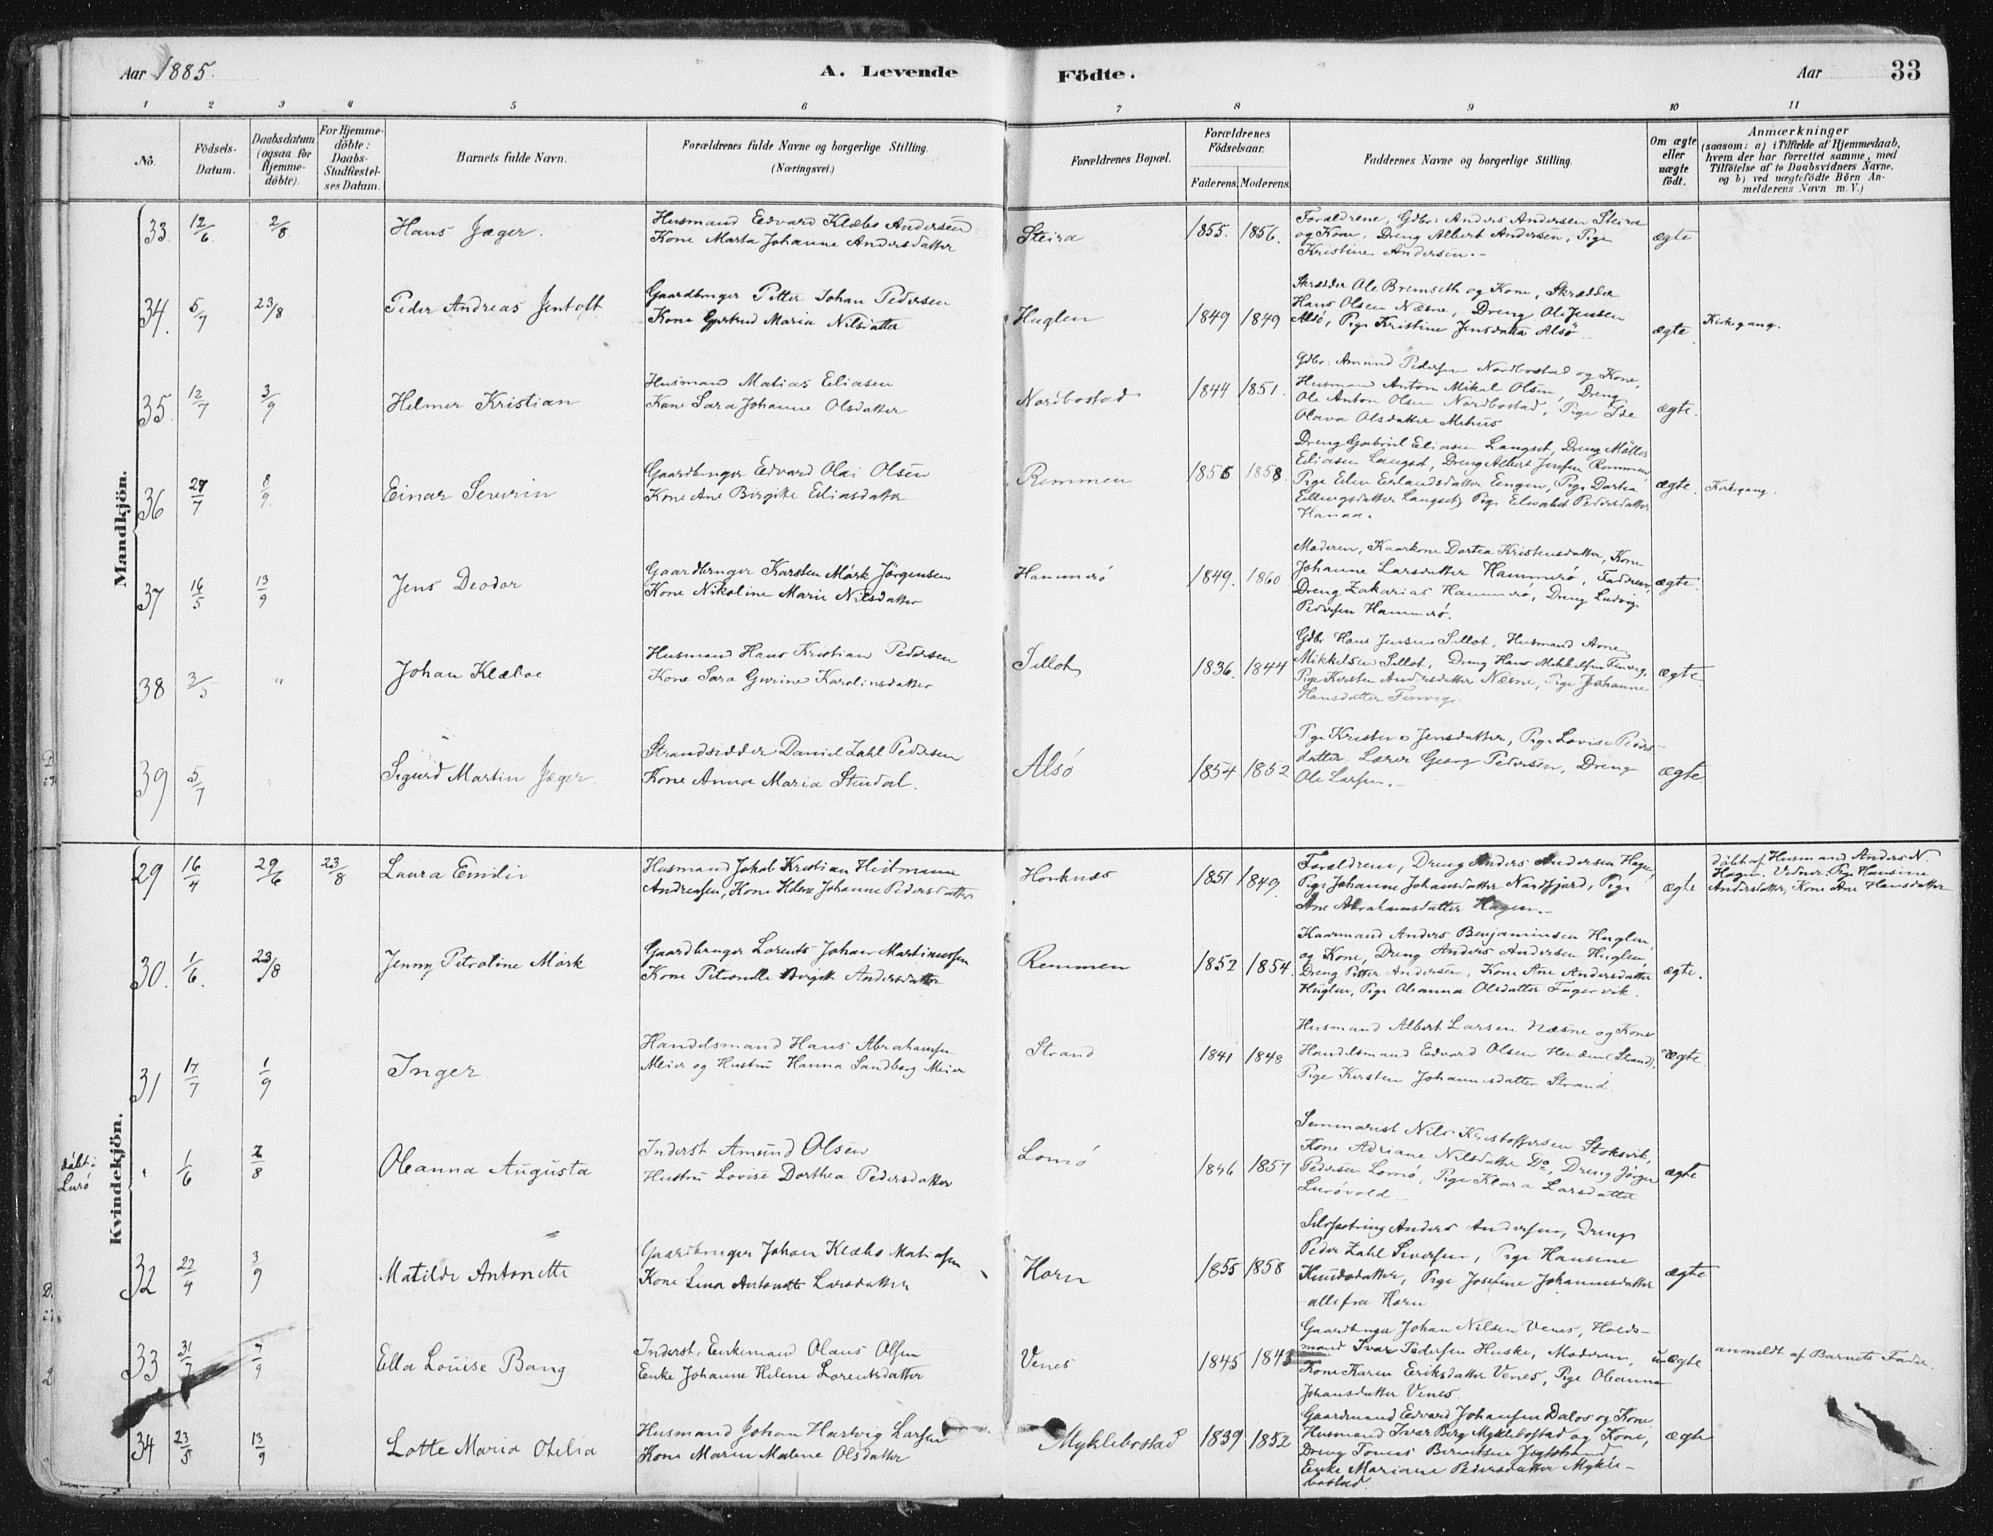 Aar 1885.
A. Levende
Födte.
Aar
33
1 2 3 4 5 6 7 8 9 10 11
No.
Födsels-
Datum.
Daabsdatum
(ogsaa for
Hjemme-
döbte).
For Hjemme-
döbte:
Daabs-
Stadfæstel-
ses Datum.
Barnets fulde Navn.
Forældrenes fulde Navne og borgerlige Stilling.
(Næringsvei.)
Forældrenes Bopæl.
Forældrenes
Födselsaar.
Faderens. Moderens.
Faddernes Navne og borgerlige Stilling.
Om ægte
eller
uægte
födt.
Anmærkninger
(saasom: a) i Tilfælde af Hjemmedaab,
hvem der har forrettet samme, med
Tilföielse af to Daabsvidners Navne.
og b) ved uægtefödte Börn An-
melderens Navn m. V.)
Mandkjön.
33. 12/6 2/8 Hans Jæger.
Husmand Edvard Klæbo Andersen
Kone Marta Johanne Andersdatter
Steira 1855. 1856.
Forældrene, Gdbr: Anders Andersen Steira
og Kone, Dreng Albert Andersen, Pige
Kristine Andersen.-
ægte
34. 5/7 23/8 Peder Andreas Jentoft
Gaardbruger Petter Johan Pedersen
Kone Gjertrud Maria Nilsdatter
Huglen 1849 1849
Skrædder Ole Bremseth og Kone, Skrædder
Hans Olsen Næsne, Dreng Ole Jensen
Alsö, Pige Kristine Jensdatter Alsö
ægte. Kirkegang.
35. 12/7 3/9 Helmer Kristian
Husmand Matias Eliasen
Kone Sara Johanne Olsdatter
Nordbostad 1844 1851.
Gdbr. Amund Pedersen Nordbostad og Kone,
Husmand Anton Mikal Olsen, Dreng
Ole Anton Olsen Nordbostad, Pige Ide
Olava Olsdatter
ægte.
36 27/7 8/9. Einar Severin
Gaardbruger Edvard Olai Olsen
Kone Ane Birgitte Eliasdatter
Remmen 1856 1858.
Dreng Gabriel Eliasen Langset, Dreng Möller
Eliasen Langset, Dreng Albert Jensen Remmen,
Pige Elen Erlandsdatter Engen, Pige Dortea
Ellingsdatter Langset, Pige Elisabet Pedersdatter
Hanaa.
ægte. Kirkegang.
37 16/5 13/9 Jens Deodor
Gaardbruger Karsten Mörk Jörgensen
Kone Nikoline Marie Nilsdatter
Hammerö 1849. 1860
Moderen, Kaarkone Dortea Kristensdatter, Kone
Johanne Larsdatter Hammerö, Faderen,
Dreng Zakarias Hammerö, Dreng Ludvig
Pedersen Hammerö.
ægte.
38 3/5 " Johan Klæboe
Husmand Hans Kristian Pedersen
Kone Sara Gurine Karolinsdatter
Sellot 1836. 1844
Gdbr Hans Jensen Sellot, Husmand Arne
Mikkelsen Sellot, Dreng Hans Mikkelsen Finvig,
Pige Kirsten Andersdatter Næsne, Pige Johanne
Hansdatter Finvig.
ægte.
39 5/7 " Sigurd Martin Jæger.
Strandsidder Daniel Zahl Pedersen
Kone Anna Maria Stendal.
Alsö 1854 1852
Pige Kristine Jensdatter, Pige Lovise Peders-
datter, Lærer Georg Pedersen, Dreng
Ole Larsen.-
ægte
Kvindekjön.
29 16/4 29/6 23/8 Laura Emilie
Husmand Jakob Kristian Heitmann
Andreasen, Kone Helene Johanne Pedersdatter
Honknes 1851 1849.
Forældrene, Dreng Anders Andersen Hagen,
Pige Johanne Johansdatter Nordfjord, Pige
Ane Abrahamsdatter Hagen.-
ægte
döbt af Husmand Anders N.
Hagen. Vidner: Pige Hansine
Andersdatter, Kone Ane Hansdatter
30. 1/6. 23/8 Jenny Petroline Mörk
Gaardbruger Lorents Johan Martinussen
Kone Petronelle Birgitte Andersdatter
Remmen 1852 1854.
Kaarmand Anders Benjaminsen Huglen,
og Kone, Dreng Anders Andersen Huglen,
Dreng Petter Andersen, Kone Ane Andersdatter
Huglen, Pige Oleanna Olsdatter Fagervik.
ægte.
31 17/7 1/9 Inger
Handelsmand Hans Abrahamsen
Meier og Hustru Hanna Sandberg Meier
Strand 1841 1848.
Husmand Albert Larsen Næsne og Kone
Handelsmand Edvard Olsen (Strand),
Pige Kirsten Johannesdatter Strand.
ægte.
döbt i
Lurö
" 1/6 2/8 Oleanna Augusta
Inderst Amund Olsen
Hustru Lovise Dorthea Pedersdatter
Lomö 1846 1857
Seminarist Nils Kristoffersen Stoksvik,
Kone Adriane Nilsdatter Do, Dreng Jörgen
Pedersen Lomö, Pige Klara Larsdatter
Lurövold.-
ægte
32 22/4 3/9 Matilde Antonette
Gaardbruger Johan Klæbo Matiasen
Kone Lina Antonette Larsdatter
Horn 1855 1858
Anders Andersen, Dreng
Peder Zahl Sivertsen, Pige Hansine
Knudsdatter, Pige Josefine Johannesdatter
alle fra Horn
ægte
33 31/7 7/9 Ella Louise Bang
Inderst, Enkemand Olaus Olsen
Enke Johanne Helene Lorentsdatter
Venes 1845 1843
Gaardbruger Johan Nilsen Venes, Holds-
mand Ivar Pedersen Huske, Moderen,
Kone Karen Eriksdatter Venes, Pige Oleanna
Johansdatter Venes.
uægte anmeldt af Barnets Fader.
34 23/5 13/9 Lotte Maria Otelia
Husmand Johan Hartvig Larsen
Kone Maren Malene Olsdatter
Myklebostad 1839 1852
Gaardmand Edvard Johansen Dalos og Kone
Husmand Ivar Berg Myklebostad og Kone,
Dreng Tomas Berentsen
Enke Mariane Pedersdatter Mykle-
bostad.
ægte